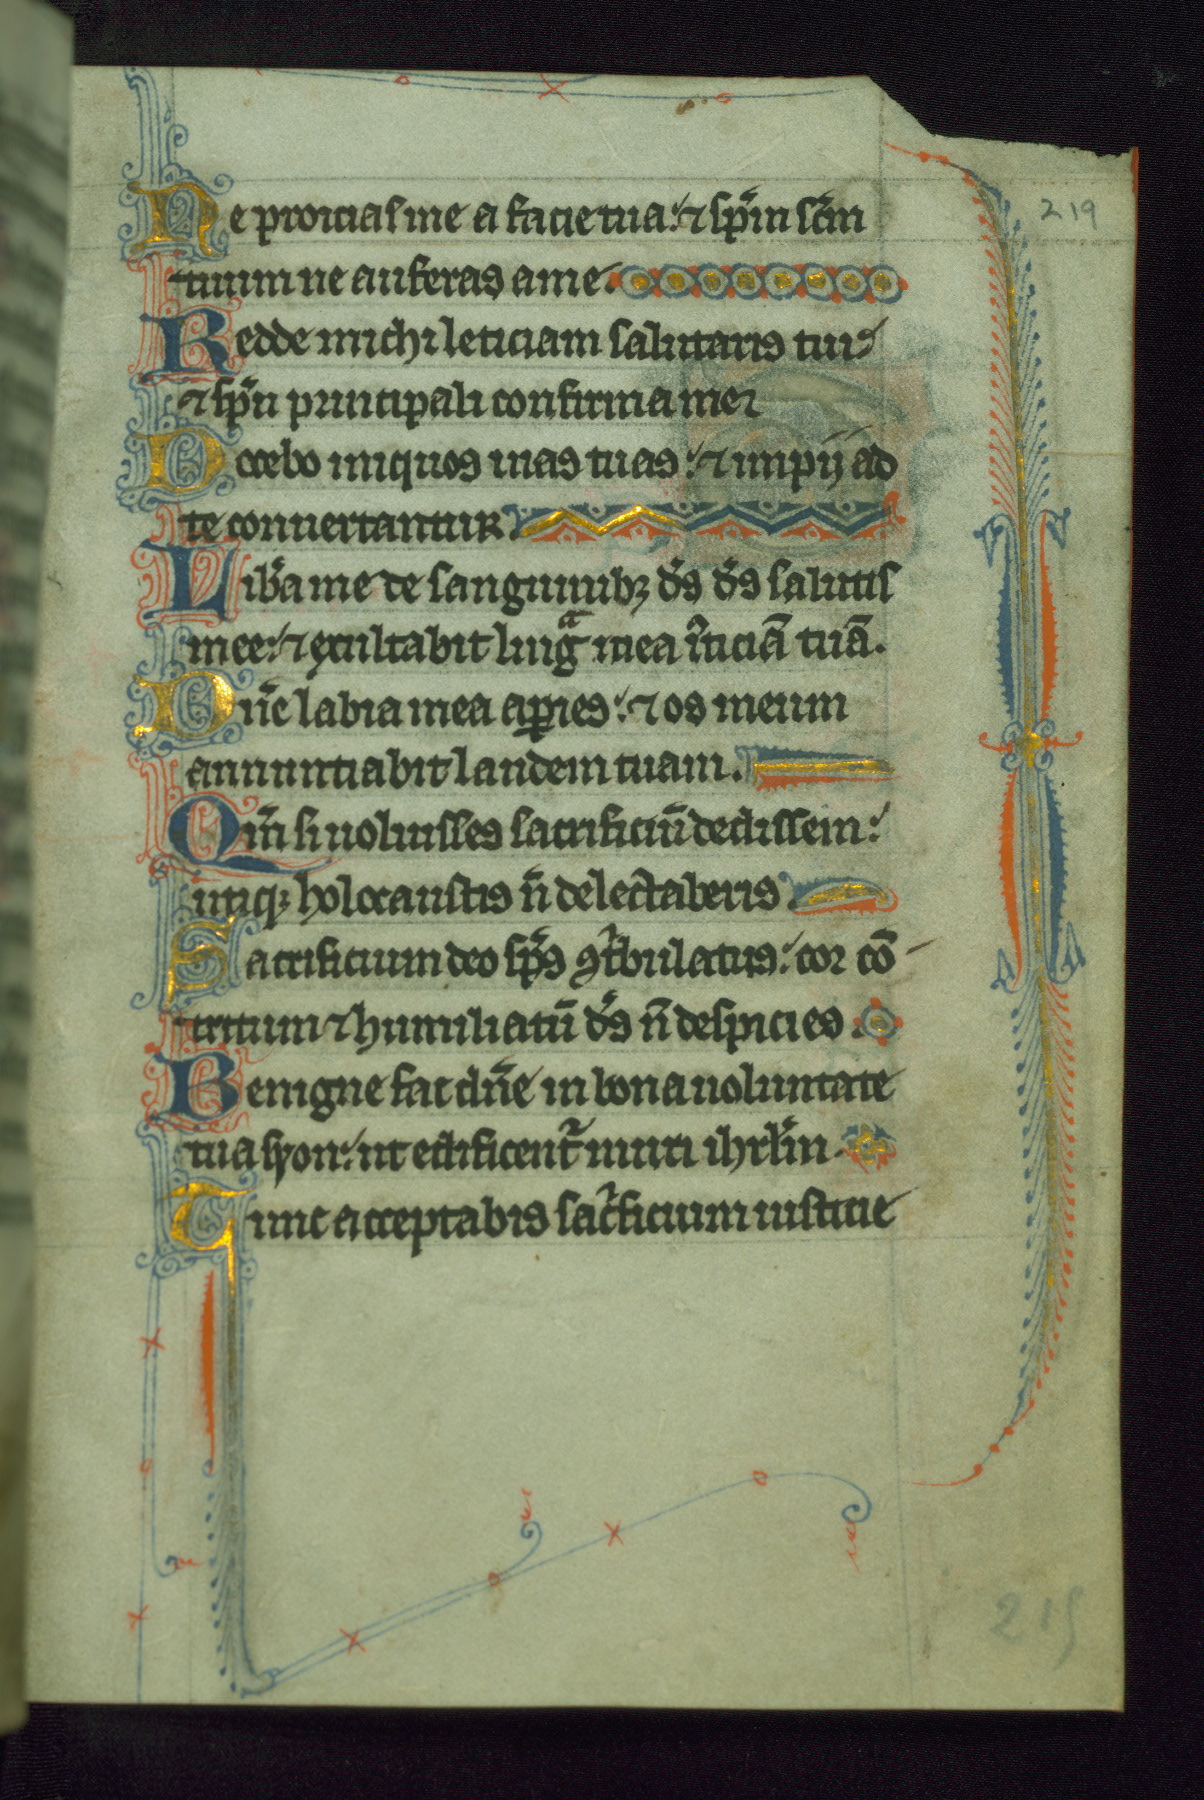 219
Ne proicias me a facie tua: ⁊ sp̅m sc̅m
tuum ne auferas a me.
Redde michi leticiam salutaris tui:
⁊ sp̅u principali confirma me
Docebo iniquos uias tuas: ⁊ impij ad
te conuertantur.
Lib̾a me de sanguinibꝫ d̅s d̅s salutis
mee: ⁊ exultabit lingᵃ mea iᷓticiā tuā.
Dn̅e labia mea aꝑies: ⁊ os meum
annuntiabit laudem tuam.
Qm̅ si uoluisses sacrificiū dedissem:
utiqꝫ holocaustis n̅ delectaberis.
Sacrificium deo sp̅s ꝯtͥbulatus: cor cō
tritum ⁊ humiliatū d̅s n̅ despicies.
Benigne fac dn̅e in bona uoluntate
tua syon: ut edificent᷑ muri ihrl̅m.
Tunc acceptabis sacͥficium iusticie
215